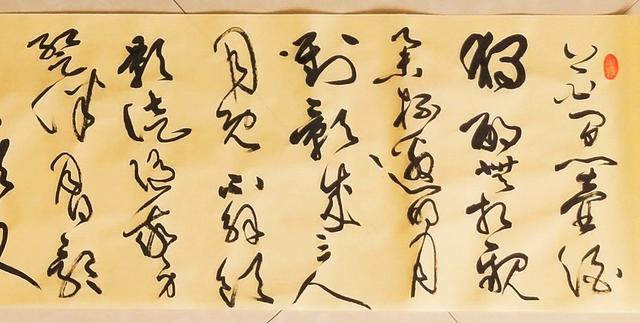 花間一壺酒
獨酌無相親
舉杯邀明月
對影成三人
月既不解飲
影徒隨我身
暫伴月將影